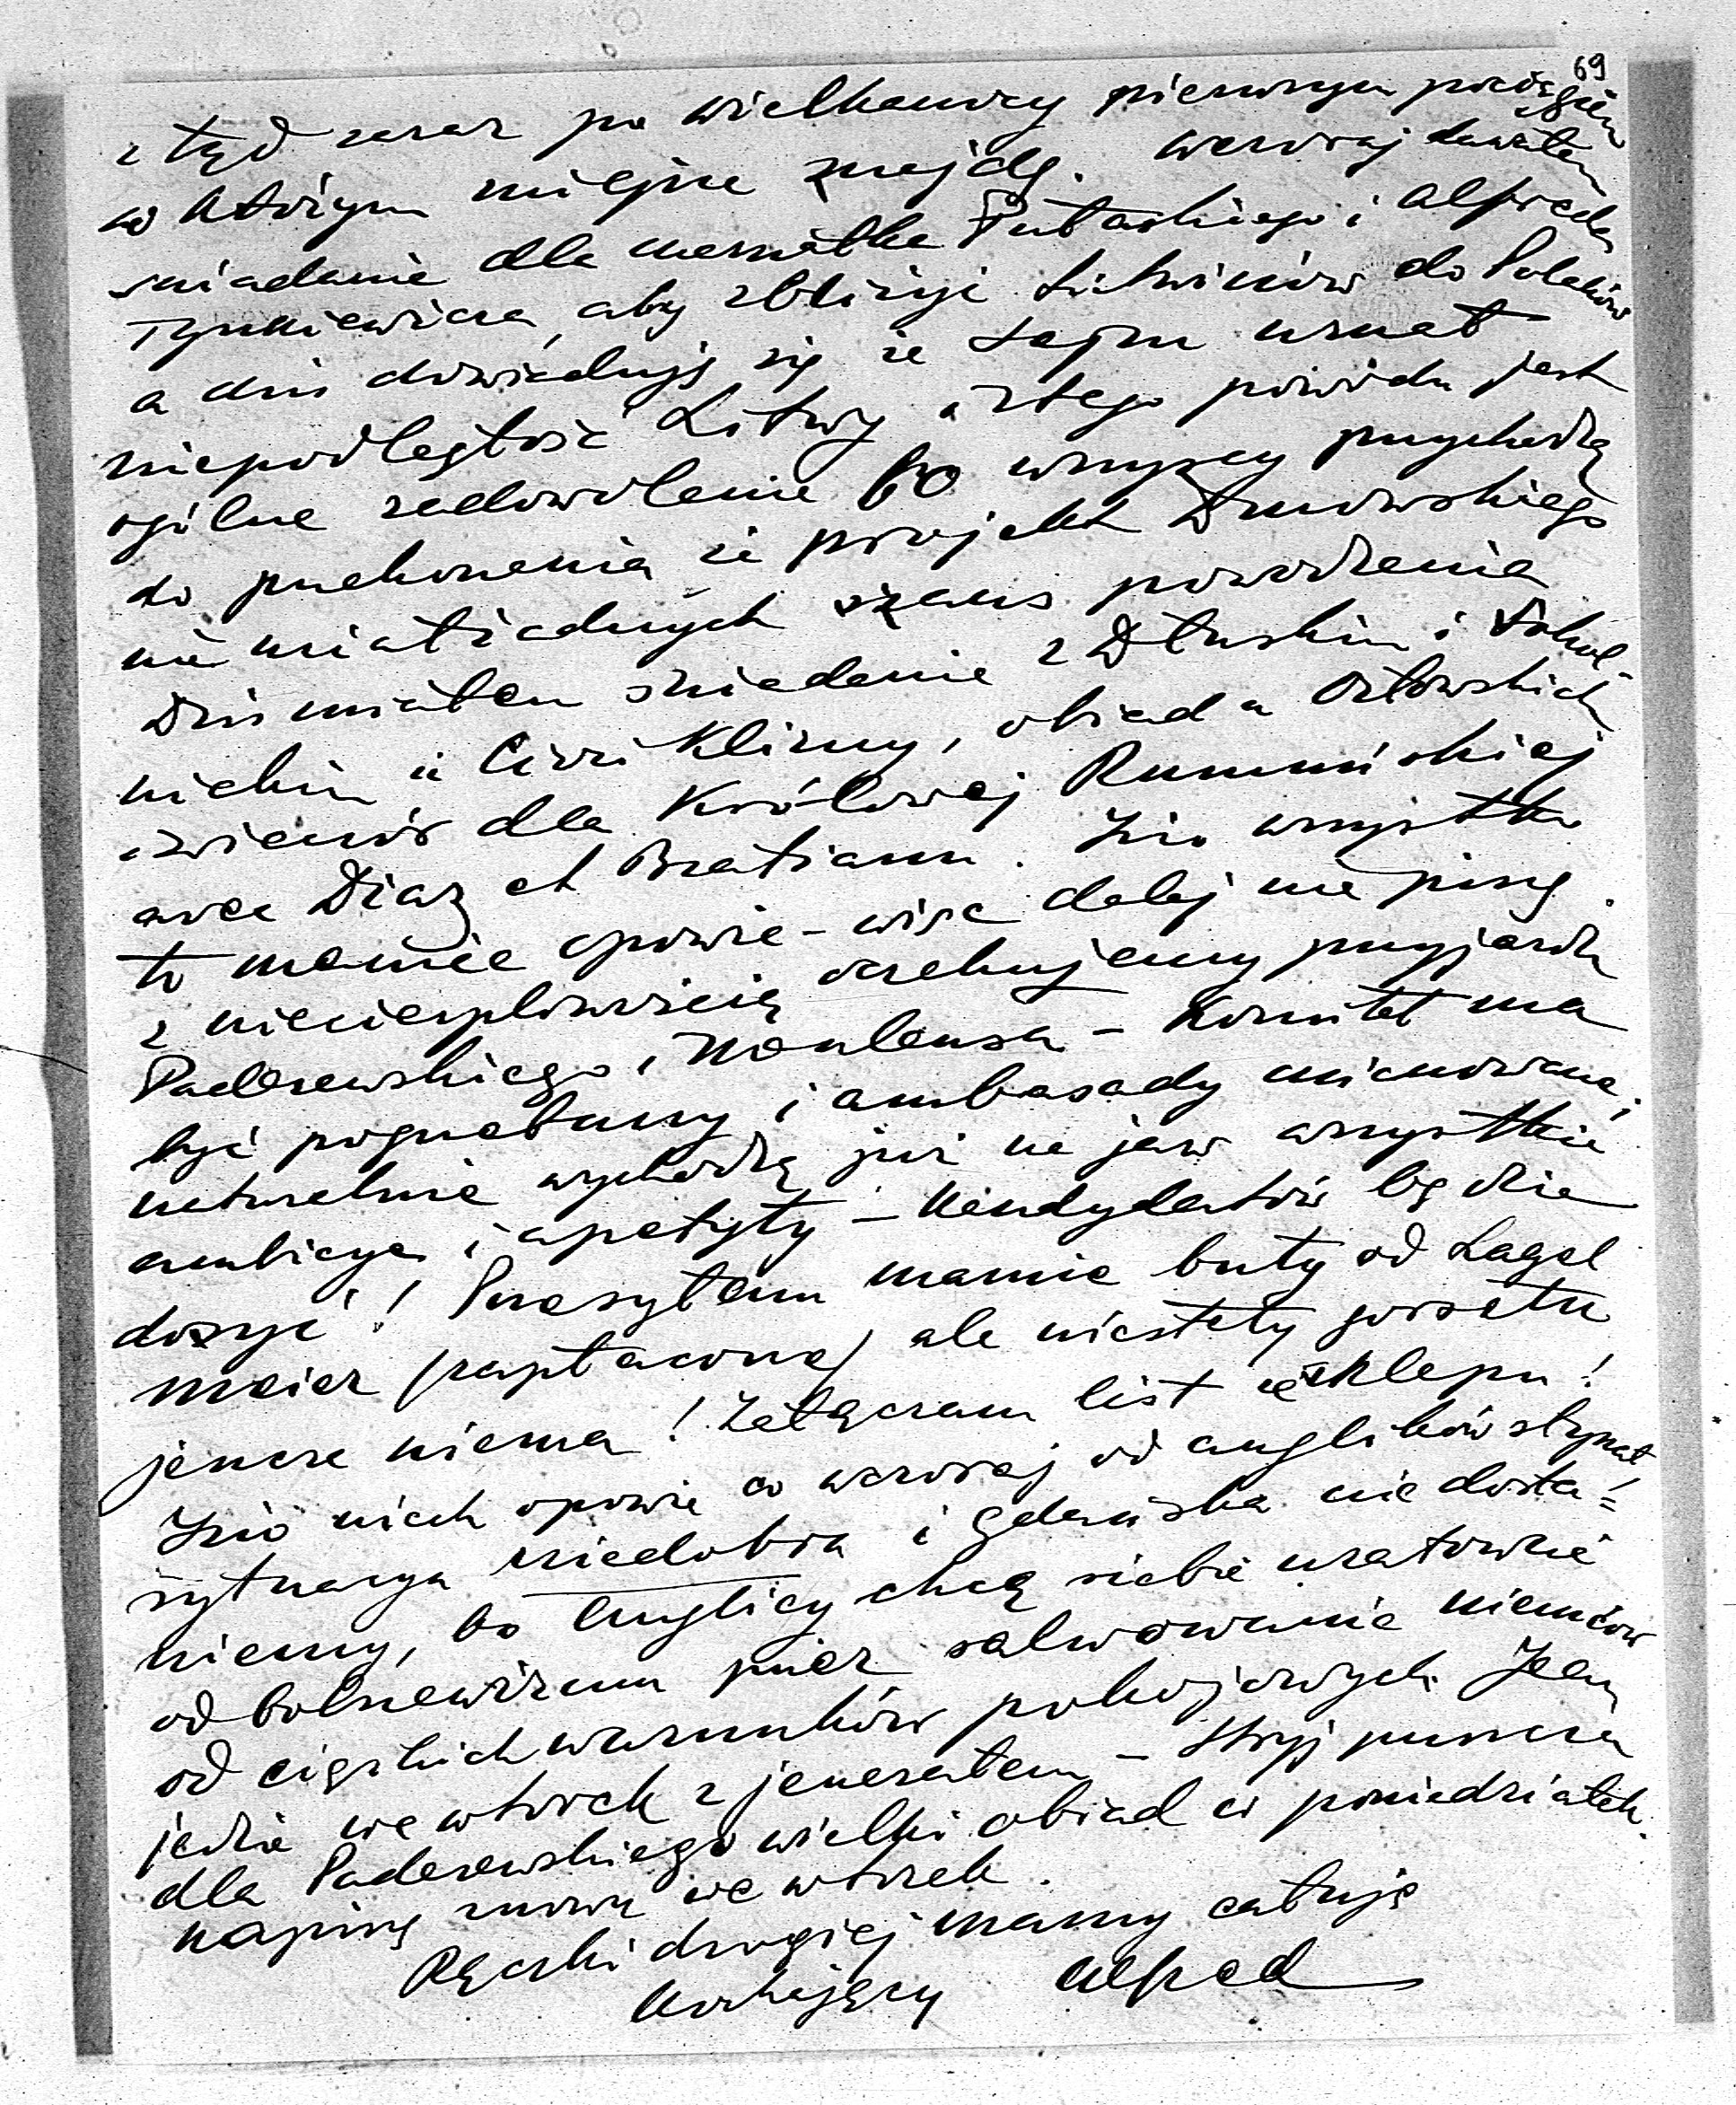 69
z tąd zaraz po wielkanocy pierwszym pociągiem
w którym miejsce znajdę. wczoraj dawałem
śniadanie dla marszałka Putaskiego i Alfreda
Tyszkiewicza, aby zbliżyć Litwinów do Polaków
a dziś dowiaduję się że Sejm uznał
niepodległość Litwy, z tego powodu jest
ogólne zadowolenie bo wszyscy przychodzą
do przekonania że projekt Dmowskiego
nie miał żadnych szans powodzenia
Dziś miałem śniadanie z Dłuskim i Sokol-
nickim u Cioci Klimy, obiad u Orłowskich
wieczór dla Królowej Rumuńskiej
avec Diaz et Bratianu. Józio wszystko
to mamie opowie - więc dalej nie piszę
z niecierpliwością oczekujemy przyjazdu
Paderewskiego i Noulensa - Komitet ma
być pogrzebany i ambasady mianowane,
naturalnie wychodzą już na jaw wszystkie
ambicye i apetyty - Kandydatów będzie
dosyć! Przesyłam mamie buty od Lagel
meier (zapłacone) ale niestety gorsetu
jeszcze niema! Załączam list ze sklepu!
Józio niech opowie co wczoraj od anglików słyszał!
sytuacya niedobra i Gdańska nie dosta=
niemy, bo Anglicy chcą siebie uratować
od bolszewizmu przez salwowanie niemców
od ciężkich warunków pokojowych. Jean
jedzie we wtorek z jenerałem - Stryj puszcza
dla Paderewskiego wielki obiad w poniedziałek.
napiszę znowu we wtorek.
Rączki drogiej mamy całuję
kochający Alfred